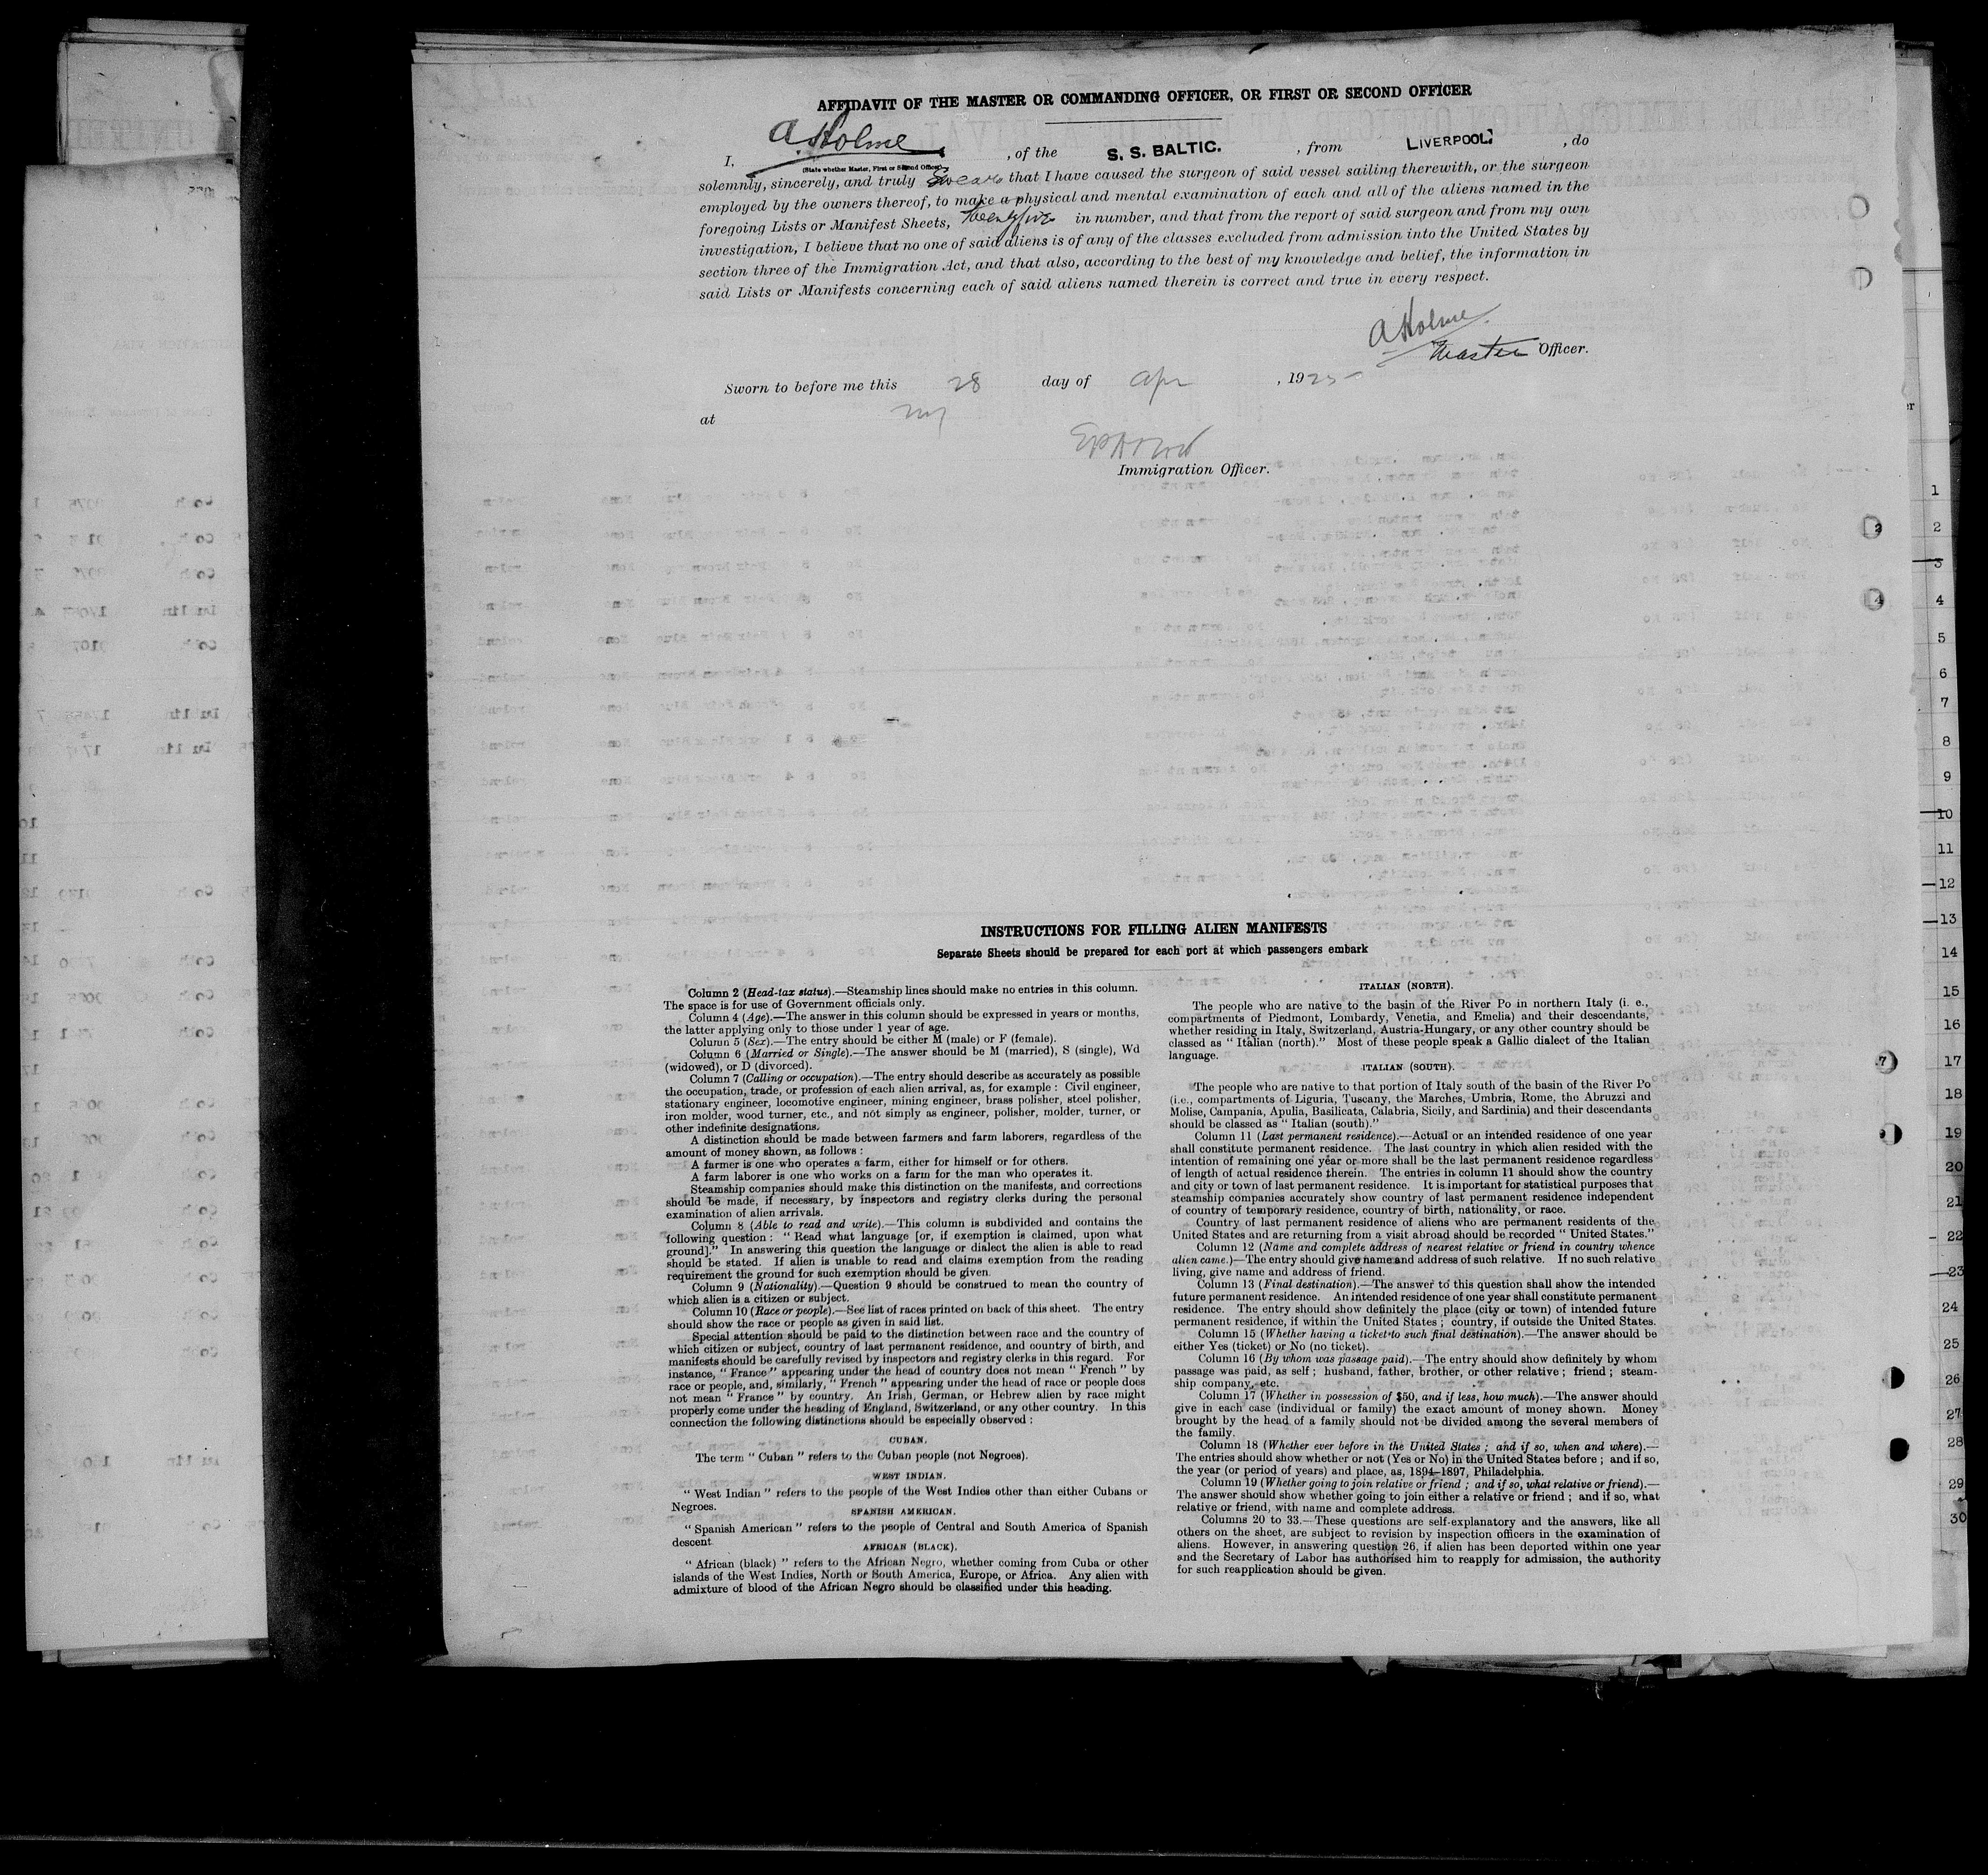 AFFIDAVIT OF THE MASTER OR COMMANDING OFFICER, OR FIRST OR SECOND OFFICER
I, A Holme, of the S. S. BALTIC. , from LIVERPOOL , do
(State whether Master, First or Second Officer)
solemnly, sincerely, and truly Swear that I have caused the surgeon of said vessel sailing therewith, or the surgeon
employed by the owners thereof, to make a physical and mental examination of each and all of the aliens named in the
foregoing Lists or Manifest Sheets, twenty five in number, and that from the report of said surgeon and from my own
investigation, I believe that no one of said aliens is of any of the classes excluded from admission into the United States by
section three of the Immigration Act, and that also, according to the best of my knowledge and belief, the information in
said Lists or Manifests concerning each of said aliens named therein is correct and true in every respect.
A Holme
Master Officer.
Sworn to before me this 28 day of Apr , 1925
at NY
Immigration Officer.
INSTRUCTIONS FOR FILLING ALIEN MANIFESTS
Separate Sheets should be prepared for each port at which passengers embark
Column 2 (Head-tax status).—Steamship lines should make no entries in this column.
The space is for use of Government officials only.
Column 4 (Age).—The answer in this column should be expressed in years or months,
the latter applying only to those under 1 year of age.
Column 5 (Sex).—The entry should be either M (male) or F (female).
Column 6 (Married or Single).—The answer should be M (married), S (single), Wd
(widowed), or D (divorced).
Column 7 (Calling or occupation).—The entry should describe as accurately as possible
the occupation, trade, or profession of each alien arrival, as, for example : Civil engineer,
stationary engineer, locomotive engineer, mining engineer, brass polisher, steel polisher,
iron molder, wood turner, etc., and not simply as engineer, polisher, molder, turner, or
other indefinite designations.
A distinction should be made between farmers and farm laborers, regardless of the
amount of money shown, as follows :
A farmer is one who operates a farm, either for himself or for others.
A farm laborer is one who works on a farm for the man who operates it.
Steamship companies should make this distinction on the manifests, and corrections
should be made, if necessary, by inspectors and registry clerks during the personal
examination of alien arrivals.
Column 8 (Able to read and write).—This column is subdivided and contains the
following question : " Read what language [or, if exemption is claimed, upon what
ground]." In answering this question the language or dialect the alien is able to read
should be stated. If alien is unable to read and claims exemption from the reading
requirement the ground for such exemption should be given.
Column 9 (Nationality).—Question 9 should be construed to mean the country of
which alien is a citizen or subject.
Column 10 (Race or people).—See list of races printed on back of this sheet. The entry
should show the race or people as given in said list.
Special attention should be paid to the distinction between race and the country of
which citizen or subject, country of last permanent residence, and country of birth, and
manifests should be carefully revised by inspectors and registry clerks in this regard. For
instance, " France " appearing under the head of country does not mean " French " by
race or people, and, similarly, " French " appearing under the head of race or people does
not mean " France " by country. An Irish, German, or Hebrew alien by race might
properly come under the heading of England, Switzerland, or any other country. In this
connection the following distinctions should be especially observed :
CUBAN.
The term " Cuban " refers to the Cuban people (not Negroes).
WEST INDIAN.
" West Indian " refers to the people of the West Indies other than either Cubans or
Negroes.
SPANISH AMERICAN.
" Spanish American " refers to the people of Central and South America of Spanish
descent.
AFRICAN (BLACK).
" African (black) " refers to the African Negro, whether coming from Cuba or other
islands of the West Indies, North or South America, Europe, or Africa. Any alien with
admixture of blood of the African Negro should be classified under this heading.
ITALIAN (NORTH).
The people who are native to the basin of the River Po in northern Italy (i. e.,
compartments of Piedmont, Lombardy, Venetia, and Emelia) and their descendants,
whether residing in Italy, Switzerland, Austria-Hungary, or any other country should be
classed as " Italian (north)." Most of these people speak a Gallic dialect of the Italian
language.
ITALIAN (SOUTH).
The people who are native to that portion of Italy south of the basin of the River Po
(i.e., compartments of Liguria, Tuscany, the Marches, Umbria, Rome, the Abruzzi and
Molise, Campania, Apulia, Basilicata, Calabria, Sicily, and Sardinia) and their descendants
should be classed as " Italian (south)."
Column 11 (Last permanent residence).—Actual or an intended residence of one year
shall constitute permanent residence. The last country in which alien resided with the
intention of remaining one year or more shall be the last permanent residence regardless
of length of actual residence therein. The entries in column 11 should show the country
and city or town of last permanent residence. It is important for statistical purposes that
steamship companies accurately show country of last permanent residence independent
of country of temporary residence, country of birth, nationality, or race.
Country of last permanent residence of aliens who are permanent residents of the
United States and are returning from a visit abroad should be recorded " United States."
Column 12 (Name and complete address of nearest relative or friend in country whence
alien came.)—The entry should give name and address of such relative. If no such relative
living, give name and address of friend.
Column 13 (Final destination).—The answer to this question shall show the intended
future permanent residence. An intended residence of one year shall constitute permanent
residence. The entry should show definitely the place (city or town) of intended future
permanent residence, if within the United States ; country, if outside the United States.
Column 15 (Whether having a ticket to such final destination).—The answer should be
either Yes (ticket) or No (no ticket).
Column 16 (By whom was passage paid).—The entry should show definitely by whom
passage was paid, as self ; husband, father, brother, or other relative ; friend ; steam-
ship company, etc.
Column 17 (Whether in possession of $50, and if less, how much).—The answer should
give in each case (individual or family) the exact amount of money shown. Money
brought by the head of a family should not be divided among the several members of
the family.
Column 18 (Whether ever before in the United States ; and if so, when and where).—
The entries should show whether or not (Yes or No) in the United States before ; and if so,
the year (or period of years) and place, as, 1894–1897, Philadelphia.
Column 19 (Whether going to join relative or friend ; and if so, what relative or friend).—
The answer should show whether going to join either a relative or friend ; and if so, what
relative or friend, with name and complete address.
Columns 20 to 33.—These questions are self-explanatory and the answers, like all
others on the sheet, are subject to revision by inspection officers in the examination of
aliens. However, in answering question 26, if alien has been deported within one year
and the Secretary of Labor has authorised him to reapply for admission, the authority
for such reapplication should be given.
1
2
3
4
5
6
7
8
9
10
11
12
13
14
15
16
17
18
19
20
21
22
23
24
25
26
27
28
29
30